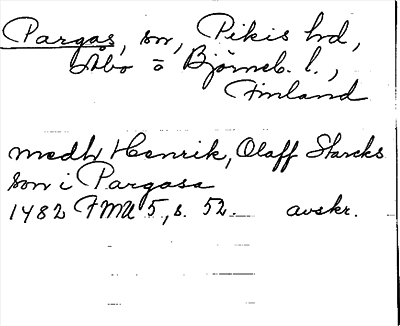 Pargas, sn, Pikis hd,
Åbo o Björneb. l.,
Finland
medh Henrik, Olaff Starcks
son i Pargasa
1482 FMU 5, s. 52. avskr.